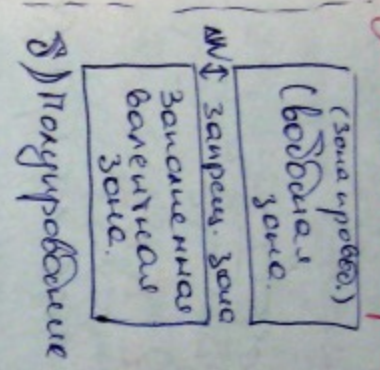 (Зона провод.)
Свободная
зона.
ΔW ↕ запрещ. зона
Заполненная
валентная
зона.
б) Полупроводние